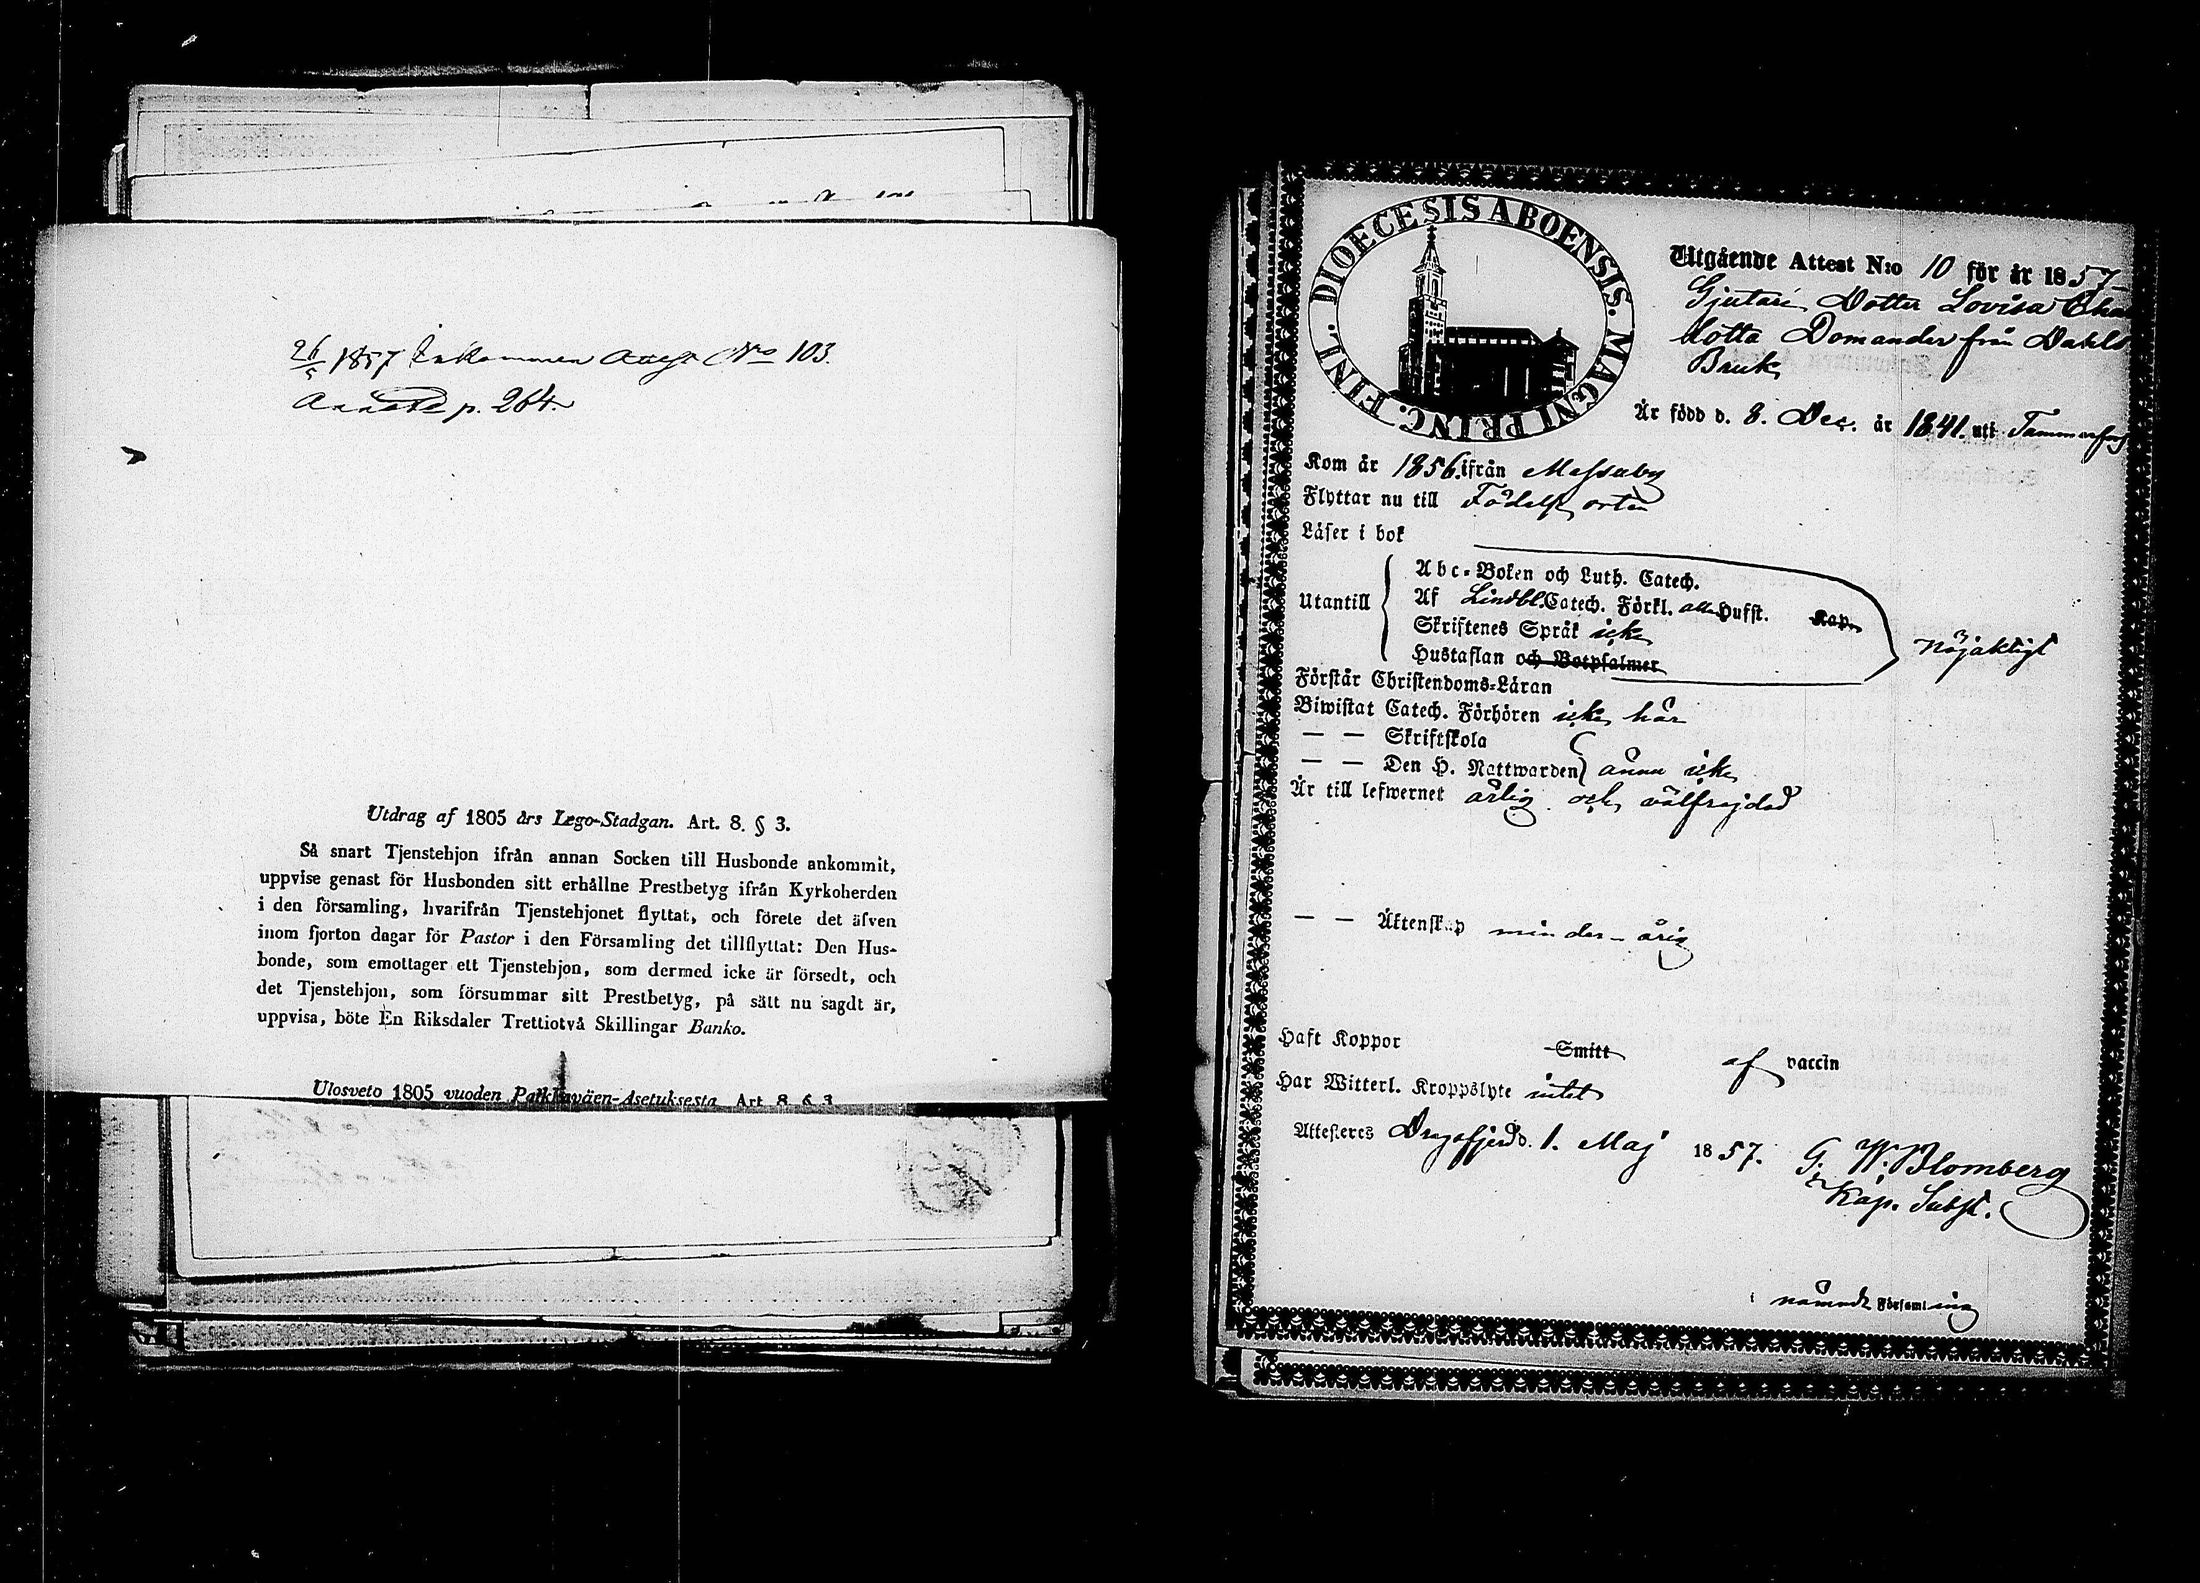 26/5 1857 Inkommen Attest No 103.
Annoterd p. 264.
Utdrag af 1805 års Lego-Stadgan. Art. 8. § 3.
Så snart Tjenstehjon ifrån annan Socken till Husbonde ankommit,
uppvise genast för Husbonden sitt erhållne Prestbetyg ifrån Kyrkoherden
i den församling, hvarifrån Tjenstehjonet flyttat, och förete det äfven
inom fjorton dagar för Pastor i den Församling det tillflyttat: Den Hus-
bonde, som emottager ett Tjenstehjon, som dermed icke är försedt, och
det Tjenstehjon, som försummar sitt Prestbetyg, på sätt nu sagdt är,
uppvisa, böte En Riksdaler Trettiotvå Skillingar Banko.
Ulosveto 1805 vuoden Palkkaväen-Asetuksesta Art. 8. § 3.
FINL. DIOECESIS ABOENSIS. MAGNI PRINC.
Utgående Attest N:o 10 för år 1857
Gjutare Dotter Lovisa Char
lotta Domander från Dahls
Bruk
Är född d. 8. Dec. år 1841. uti Tammerfors
Kom år 1856. ifrån Messuby
Flyttar nu till Födelse orten
Läser i bok
Abc-Boken och Luth. Catech.
Utantill
Af Lindbl. Catech. Förkl. alla Hufst. Kap.
Skriftenes Språk icke
nöjaktigt
Hustaflan och Botpsalmer
Förstår Christendoms-Läran
Biwistat Catech. Förhören icke här
— — Skriftskola
— — Den H. Nattwarden } ännu icke
Är till lefwernet ärlig och välfrejdad
— — Äktenskap minder-årig
Haft Koppor Smitt af vaccin
Har Witterl. Kroppslyte intet
Attesteres Dragsfjerd d. 1. Maj 1857. G. W. Blomberg
Kap. Subst.
i nämnde Församling